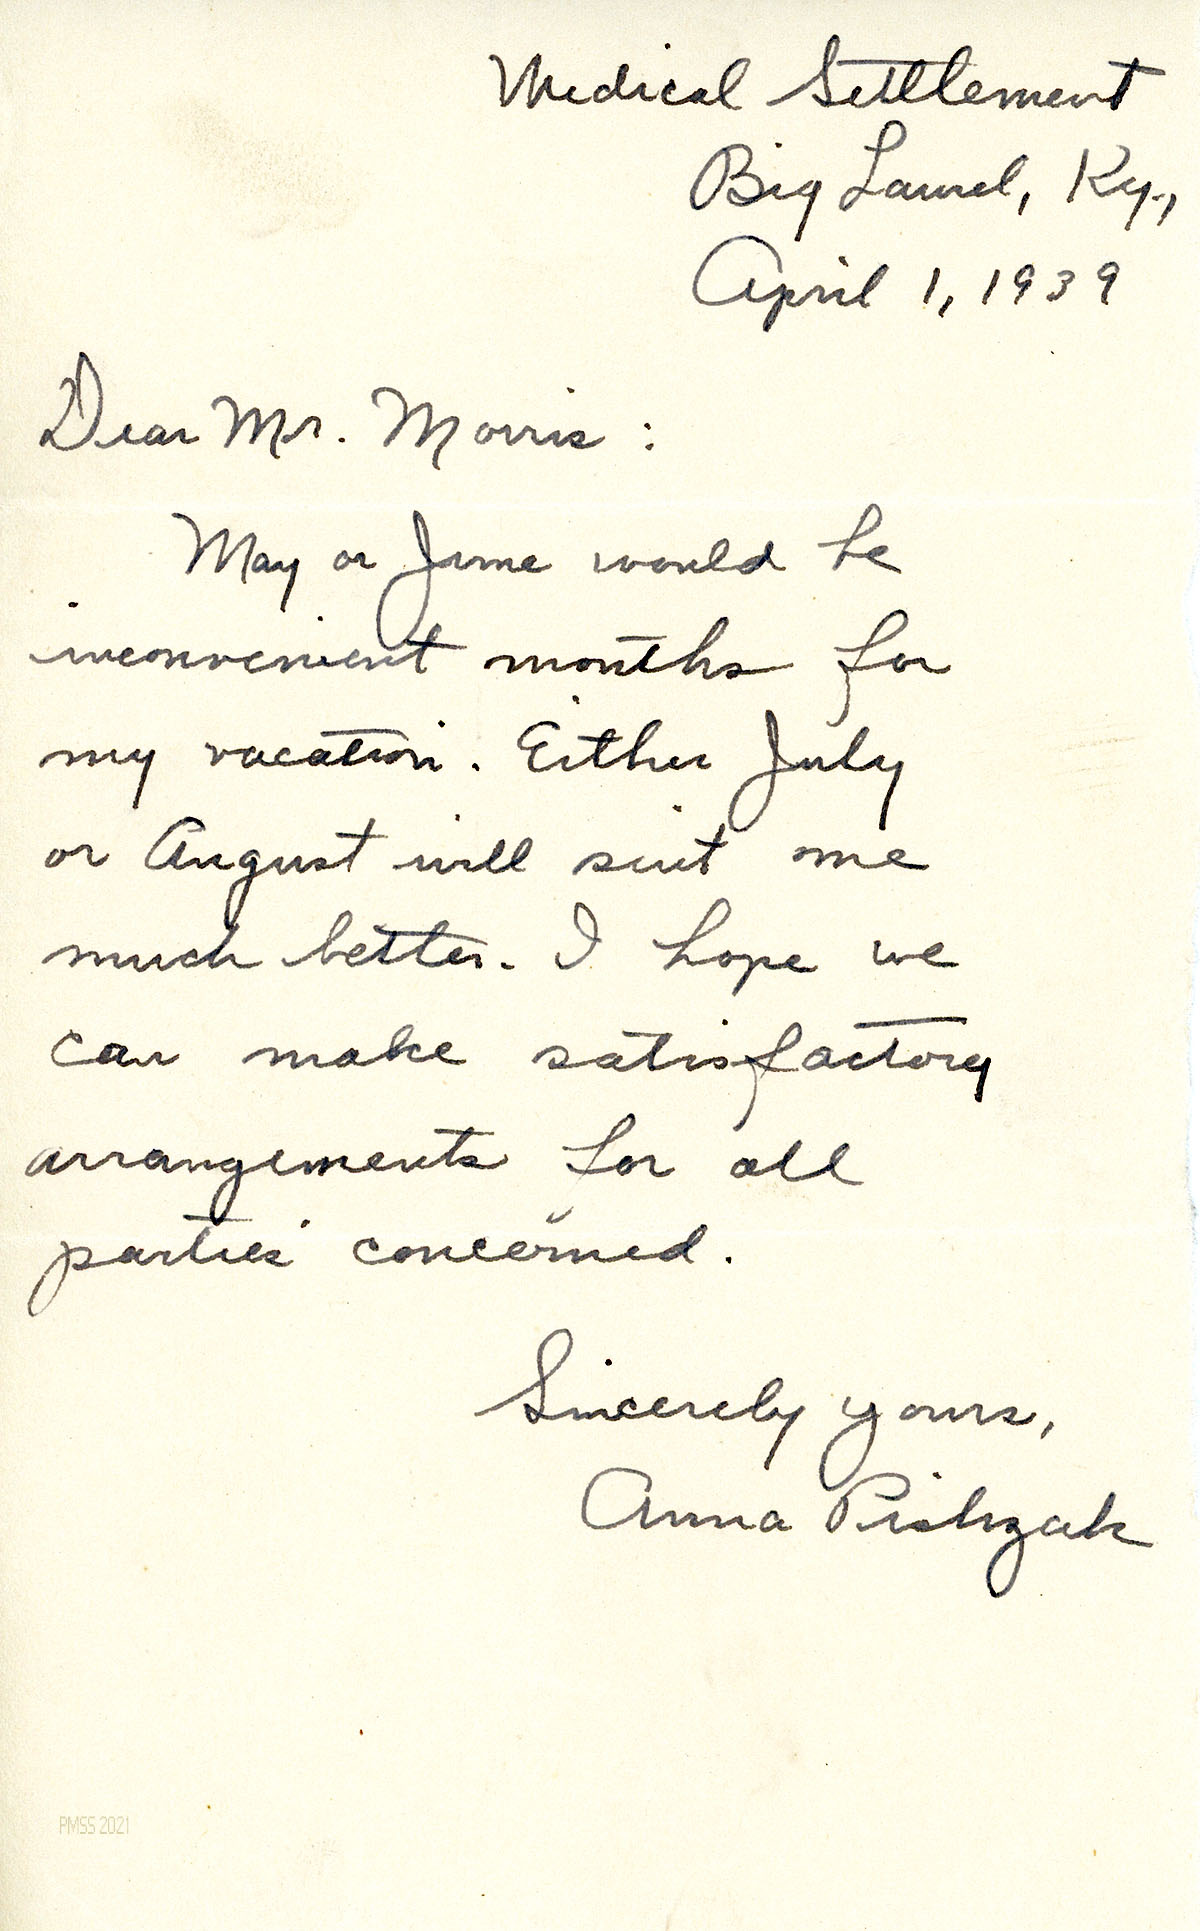 Medical Settlement
Big Laurel, Ky.,
April 1, 1939
Dear Mr. Morris:
May or June would be
inconvenient months for
my vacation. Either July
or August will suit me
much better. I hope we
can make satisfactory
arrangements for all
parties concerned.
Sincerely yours,
Anna Pishzak
PMSS 2021